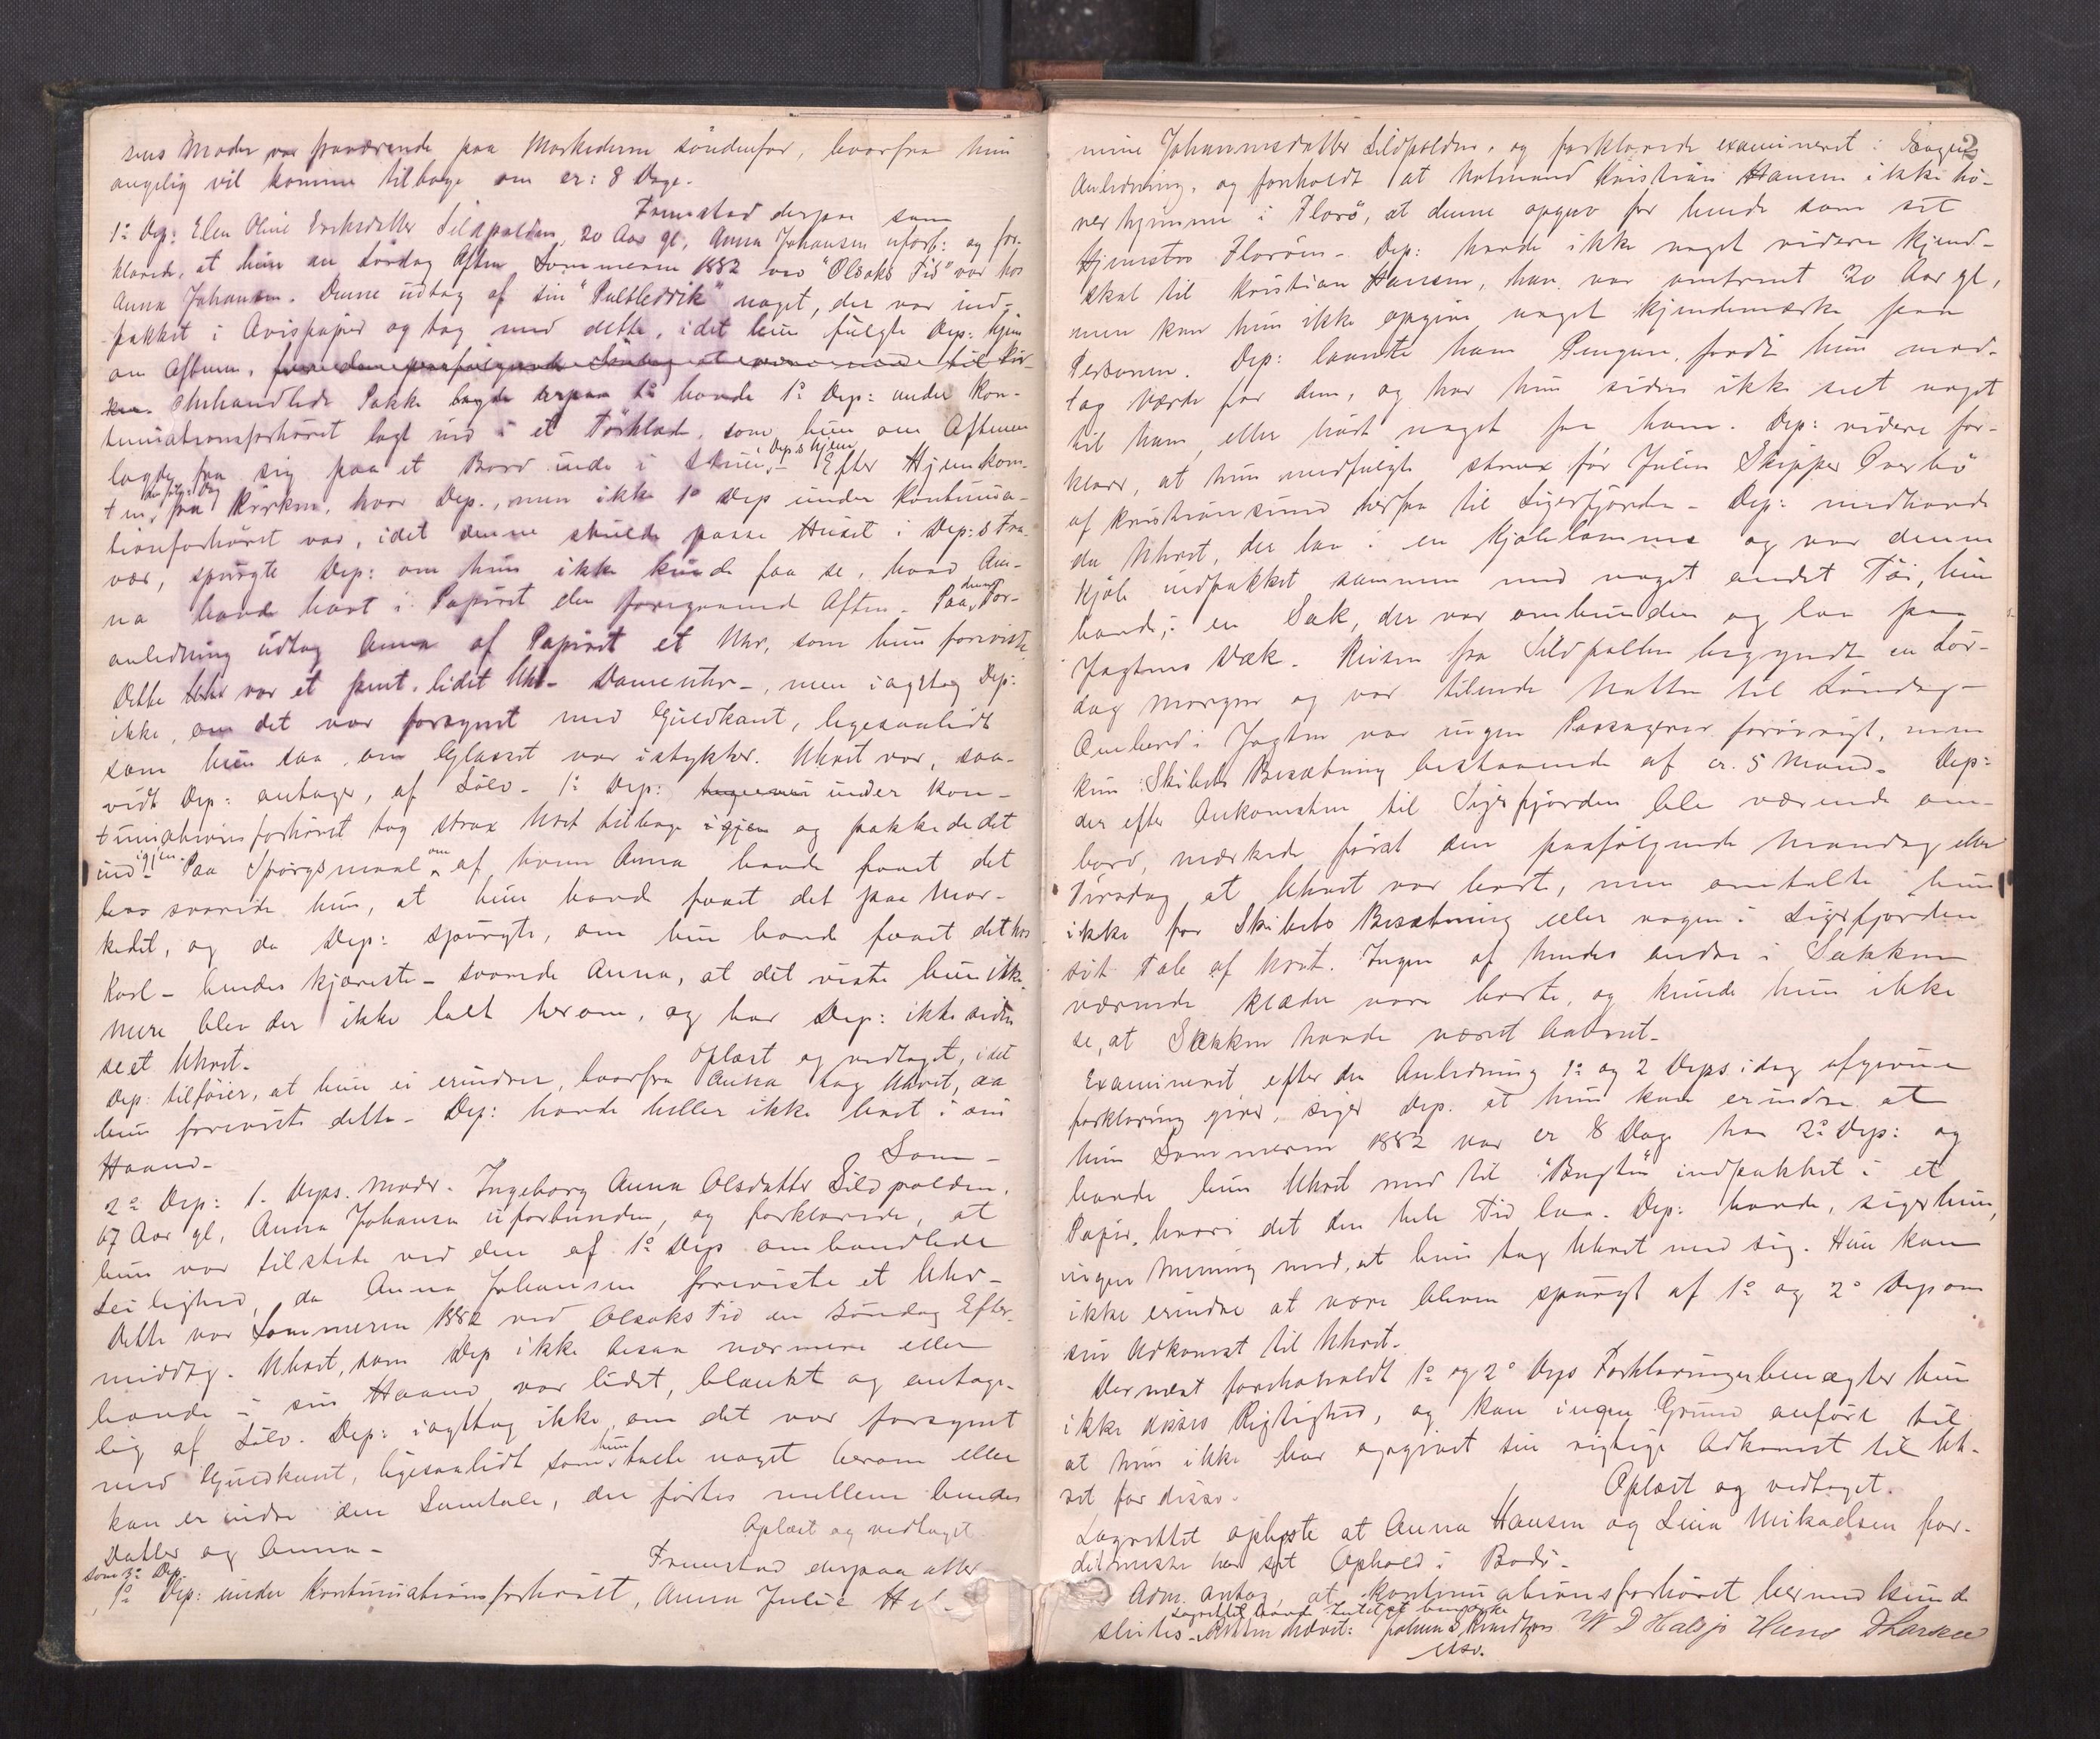 sens Moder var fraværende paa Markederne söndenfor, hvorfra hun
angelig vil komme tilbage om cr: 8 Dage.
Fremstod derpaa som
1ste Dep: Elen Oline Eriksdatter Sildpolden, 20 Aar gl, Anna Johansen uforb: og for-
klarede, at hun en Lördag Aften Sommeren 1882 ved "Olsoks Tid" var hos
Anna Johansen. Denne udtog af sin "Pultledrik" noget, der var ind-
pakket i Avispapir og tog med dette, idet hun fulgte Dep: hjem
om Aftenen, for den paafølgende Söndag at være med til Kir-
ken. Omhandlede Pakke havde 1ste Dep: under Kon-
tinuationsforhöret lagt ind i et Törklæde, som hun om Aftenen
lagde fra sig paa et Bord inde i Stuen, i Dep's hjem - Efter Hjemkom-
sten, den fölg: Dag fra Kirken, hvor Dep., men ikke 1ste Dep under Kontinua-
tionsforhöret var, idet denne skulde passe Huset i Dep:s Fra-
vær, spurgte Dep: om hun ikke kunde faa se, hvad An-
na havde havt i Papiret den foregaaende Aften. Paa dennes For-
anledning udtog Anna af Papiret et Uhr, som hun foreviste.
Dette Uhr var et pent, lidet Uhr - Dameuhr -, men iagttog Dep:
ikke, om det var forsynet med Guldkant, ligesaalidt
som hun saa om Glasset var istykker. Uhret var, saa-
vidt Dep: antager, af Sölv. 1ste Dep: under Kon-
tinuationsforhöret tog strax Uhret tilbage igjen og pakkede det
ind igjen - Paa Spörgsmaal om af hvem Anna havde faaet det
svarede hun, at hun havde faaet det paa Mar-
kedet, og da Dep: spurgte, om hun havde faaet det hos
Karl - hendes Kjæreste - svarede Anna, at det vidste hun ikke.
Mere blev der ikke talt herom, og har Dep: ikke siden
seet Uhret.
Oplæst og vedtaget, idet
Dep: tilföier, at hun ei erindrer, hvorfra Anna tog Uhret, da
hun foreviste dette - Dep: havde heller ikke havt i sin
Haand -
Som -
2de Dep: 1. Deps. Moder - Ingeborg Anna Olsdatter Sildpolden,
67 Aar gl, Anna Johansen uforbunden, og forklarede, at
hun var tilstede ved den af 1ste Dep omhandlede
Leilighed, da Anna Johansen foreviste et Uhr -
Dette var Sommeren 1882 ved Olsoks Tid en Söndag Efter-
middag. Uhret, som Dep ikke besaa nærmere eller
havde i sin Haand var lidet, blankt og antage-
lig af Sölv. Dep: iagttog ikke, om det var forsynet
med Guldkant, ligesaalidt som hun talte noget herom eller
kan erindre den Samtale, der förtes mellem hendes
Datter og Anna -
Oplæst og vedtaget.
Fremstod derpaa atter
som 3die Dep.
1ste Dep: under Kontinuationsforhöret, Anna Julie Hel-
2
mine Johannesdatter Sildpolden, og forklarede examineret i
Anledning, og foreholdt at Matmand Kristian Hansen ikke hö-
rer hjemme i Florö, at denne opgav for hende som sit
Hjemsted Floröen - Dep: havde ikke noget videre Kjend-
skab til Kristian Hansen, han var omtrent 20 Aar gl,
men kan hun ikke opgive noget Kjendemærke paa
Personen. Dep: laante ham Pengene, fordi hun mod-
tog Værdi for dem, og har hun siden ikke seet noget
til ham, eller hört noget fra ham. Dep: videre for-
klarer, at hun medfulgte strax för Julen Skipper Överbö
af Kristiansund herfra til Sigerfjorden - Dep: medhavde
da Uhret, der laa i en Kjolelomme og var denne
Kjole indpakket sammen med noget andet Töi, hun
havde, i en Sæk, der var ombunden og laa paa
Jagtens Dæk. Reisen fra Sildpollen begyndte en Lör-
dag Morgen og var tilende Natten til Söndag -
Ombord i Jagten var ingen Passagerer forövrigt, men
kun Skibets Besætning bestaaende af cr. 5 Mand. Dep:
der efter Ankomsten til Sigerfjorden blev værende om-
bord, mærkede först den paafölgende Mandag eller
Tirsdag at Uhret var borte, men omtalte hun
ikke for Skibets Besætning eller nogen i Sigerfjorden
sit Tab af Uhret. Ingen af hendes andre i Sækken
værende Klæder vare borte, og kunde hun ikke
se, at Sækken havde været aabnet -
Examineret efter den Anledning 1ste og 2 Deps idag afgivne
forklaring giver, siger Dep. at hun kan erindre at
hun Sommeren 1882 var cr 8 Dage hos 2de Dep: og
havde hun Uhret med til "Bugten" indpakket i et
Papir, hvori det den hele Tid laa. Dep: havde, siger hun,
ingen Mening med, at hun tog Uhret med sig. Hun kan
ikke erindre at være bleven spurgt af 1ste og 2de Dep om
sin Adkomst til Uhret -
Dernæst foreholdt 1ste og 2de Deps Forklaringer benægter hun
ikke disses Rigtighed, og kan ingen Grund anföre til
at hun ikke har opgivet sin rigtige Adkomst til Uh-
ret for disse.
Oplæst og vedtaget.
Lagrettet oplyste at Anna Hansen og Lina Mikaelsen for-
detmeste har sit Ophold i Bodö -
Adm. antog, at Kontinuationsforhöret hermed kunde
Lagrettet havde Intet at bemærke
sluttes. - Retten hævet: W D Halsjö Hans D Larsen